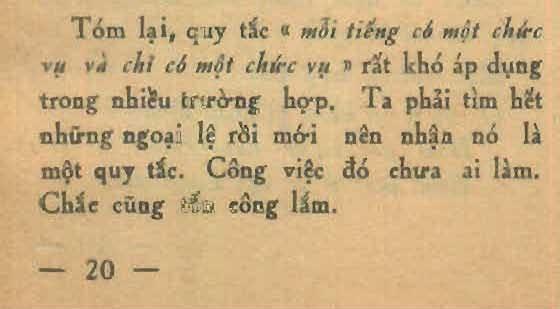 Tóm lại, quy tắc « mỗi tiếng có một chức
vụ và chỉ có một chức vụ » rất khó áp dụng
trong nhiều trường hợp. Ta phải tìm hết
những ngoại lệ rồi mới nên nhận nó là
một quy tắc. Công việc đó chưa ai làm.
Chắc cũng tốn công lắm.
— 20 —